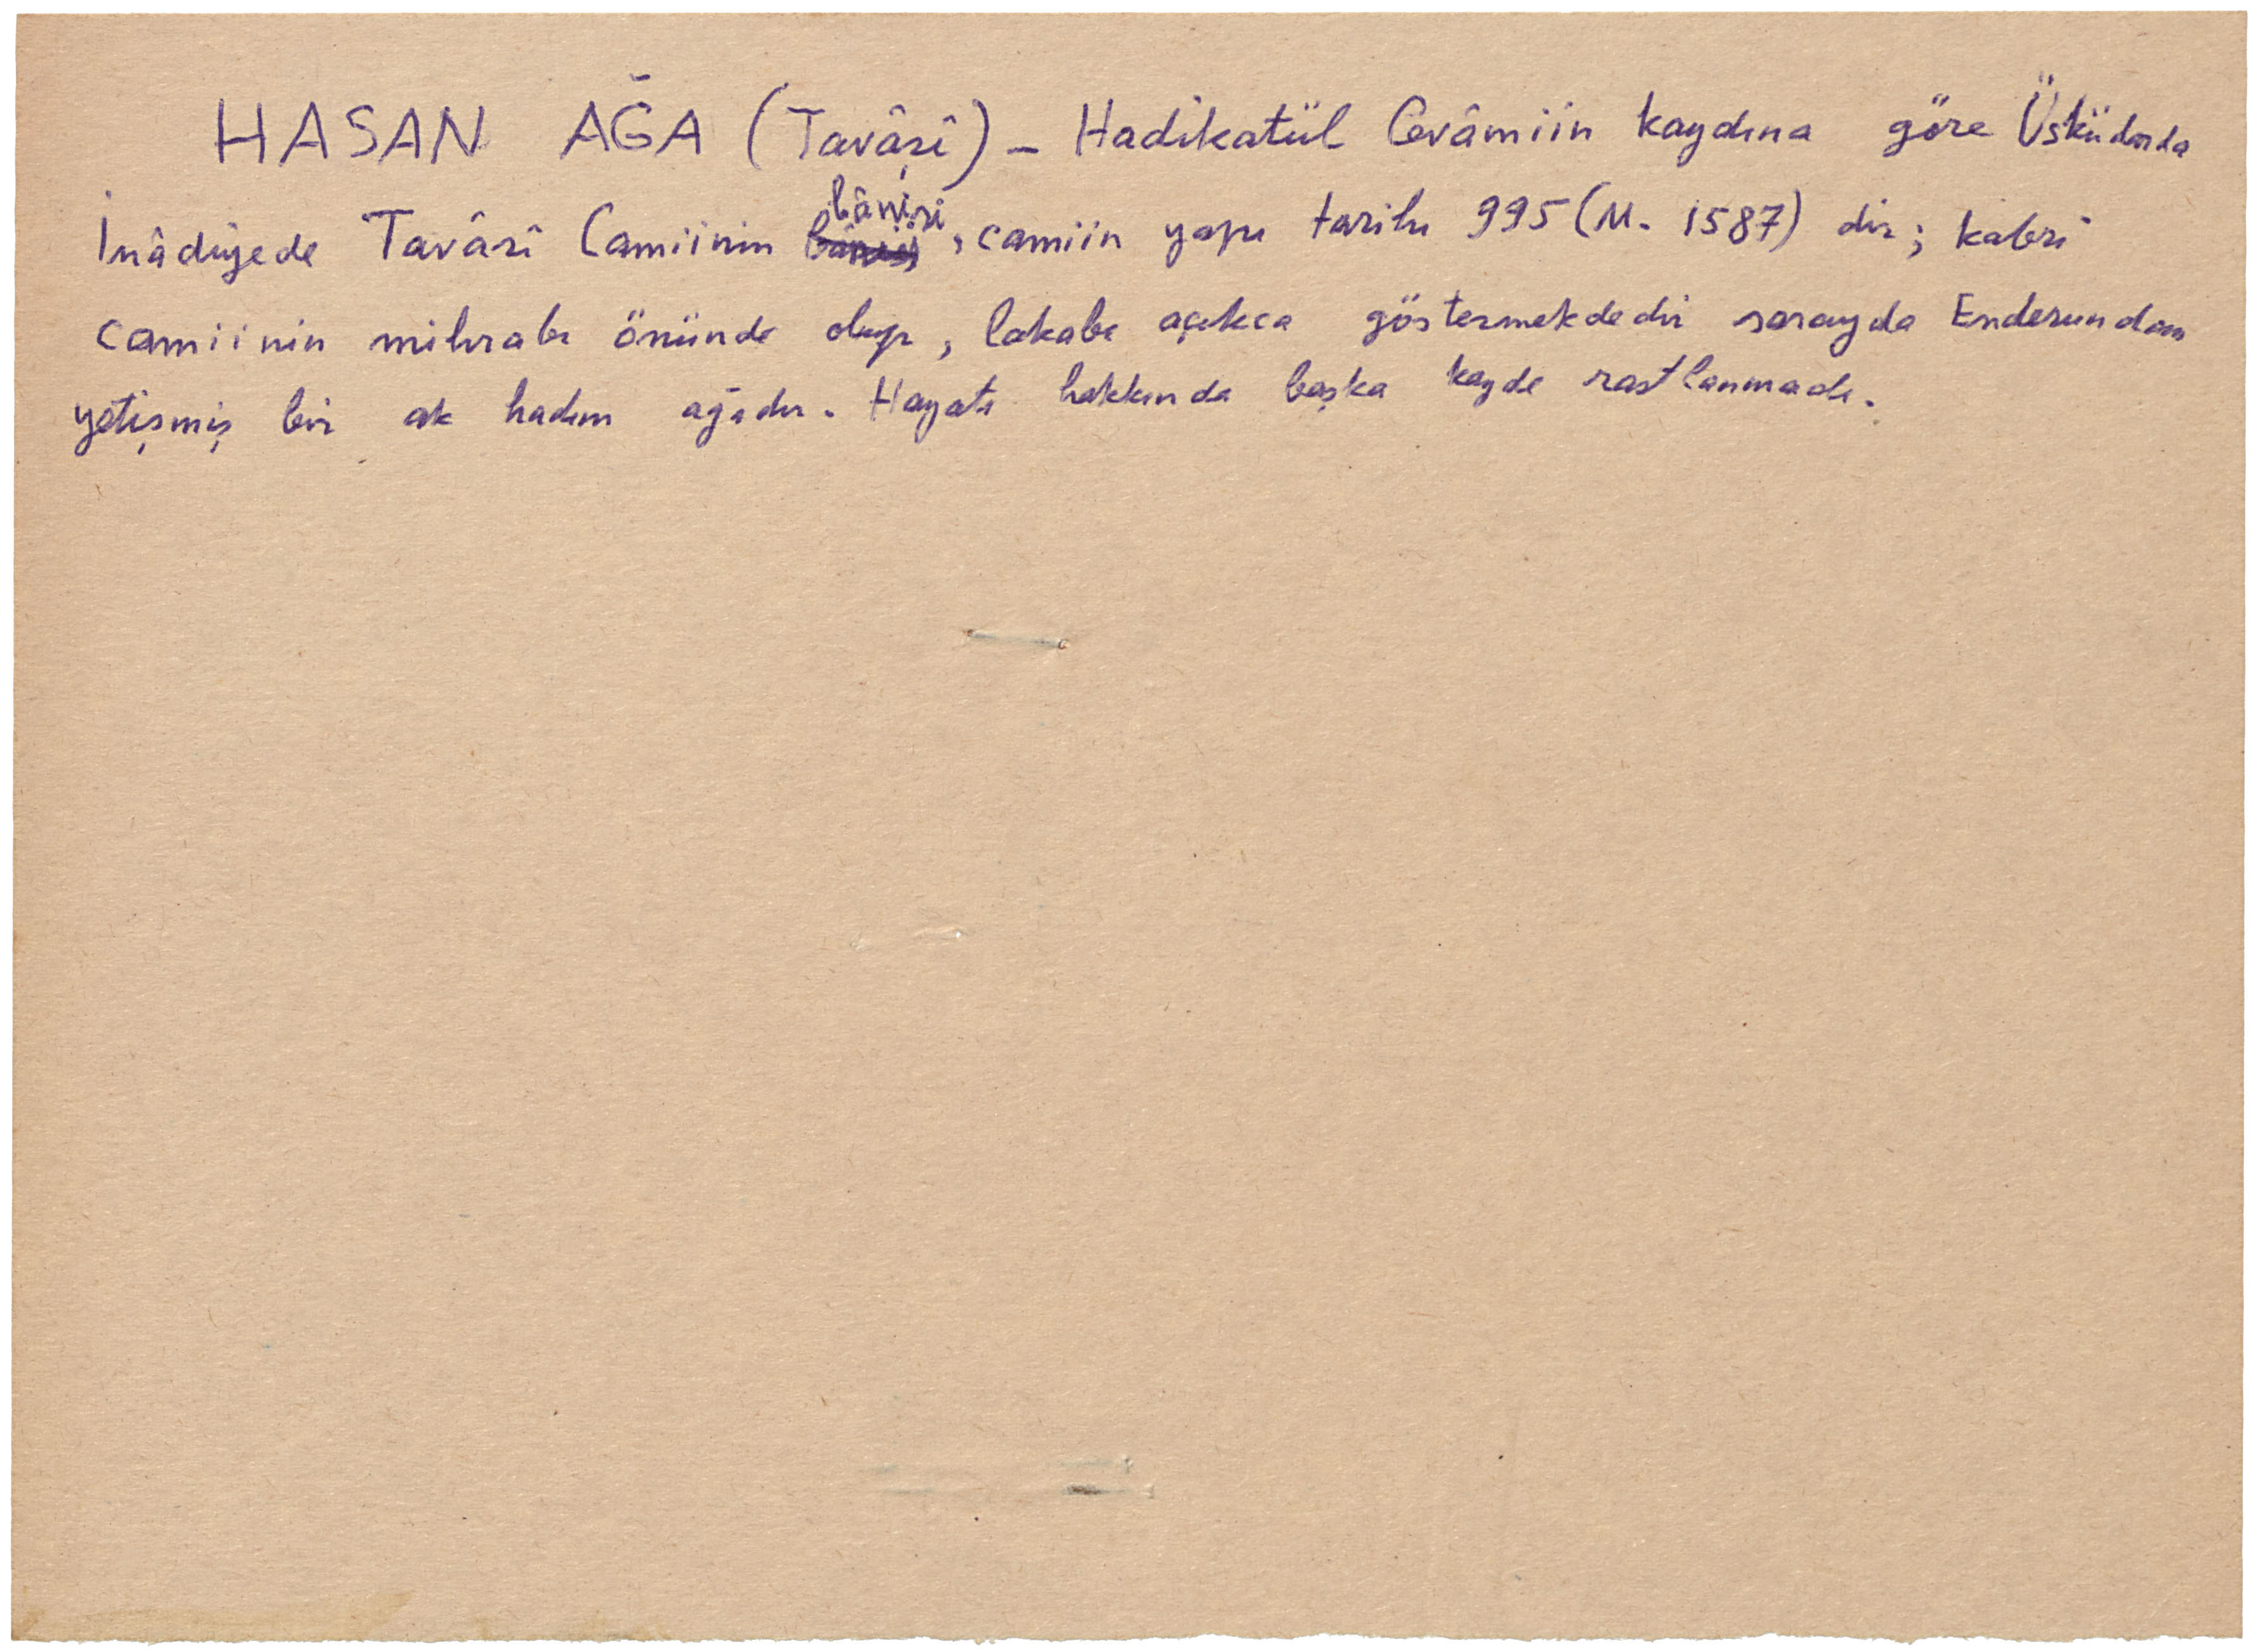 HASAN AĞA (Tavâşî) – Hadikatül Cevâmiin kaydına göre Üsküdarda
İnâdiyede Tavâşî Camiinin bânisi, camiin yapı tarihi 995 (M. 1587) dir; kabri
camiinin mihrabı önünde olup, lakabı açıkca göstermekdedir sarayda Enderundan
yetişmiş bir ak hadım ağadır. Hayatı hakkında başka kayde rastlanmadı.